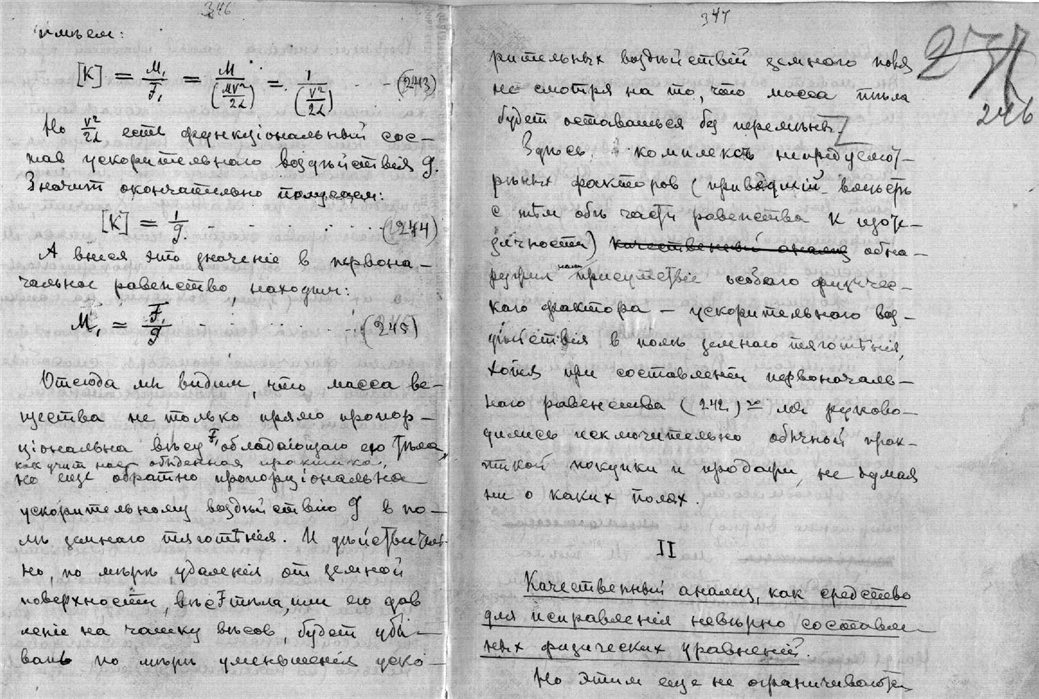 346
имѣем:
[K] = M₁/F₁ = M/(MV²/2L) = 1/(V²/2L) (243)
Но V²/2L есть функціональный сос-
тав ускорительнаго воздѣйствія g.
Значит окончательно получаем:
[K] = 1/g. (244)
А внеся это значеніе в первона-
чальное равенство, находим:
M₁ = F₁/g (245)
Отсюда мы видим, что масса ве-
щества не только прямо пропор-
ціональна вѣсу F₁ обладающаго ею тѣла,
как учит нас обыденная практика,
но еще обратно пропорціональна
ускорительному воздѣйствію g в по-
лѣ земнаго тяготѣнія. И дѣйствитель-
но, по мѣрѣ удаленія от земной
поверхности, вѣс F тѣла, или его дав
леніе на чашку вѣсов, будет убы-
вать по мѣрѣ уменьшенія уско-
347
рительных воздѣйствій земного поля
не смотря на то, что масса тѣла
будет оставаться без перемѣны.
Здѣсь комплекс непредусмот-
рѣнных факторов (приводящій вмѣстѣ
с тѣм обѣ части равенства к тож-
дичности) качественный анализ обна-
ружил нам присутствіе особаго физичес-
каго фактора — ускорительнаго воз-
дѣйствія в полѣ земнаго тяготѣнія,
хотя при составленіи первоначаль-
наго равенства (242) мы руково-
дились исключительно обычной прак-
тикой покупки и продажи, не думая
ни о каких полях.
II
Качественный анализ, как средство
для исправленія невѣрно составлен-
ных физических уравненій.
Но этим еще не ограничивается
246